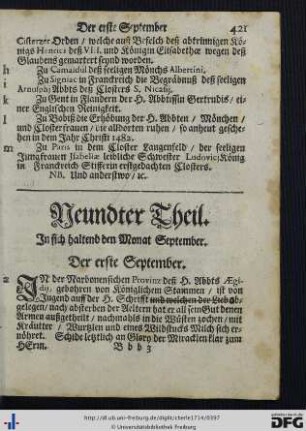 Der erste September 421
Cistertzer Orden / welche auß Befelch deß abtrünnigen Kö-
nigs Henrici deß VIII. und Königin Elisabethæ wegen deß
Glaubens gemartert seynd worden.
h Zu Camaldul deß seeligen Mönchs Albertini.
i Zu Signiac in Franckreich die Begräbnuß deß seeligen
Arnulphi Abbts deß Closters S. Nicasij.
k Zu Gent in Flandern der H. Abbtissin Gertrudis / ei-
ner Englischen Reinigkeit.
l Zu Bobiß die Erhöbung der H. Abbten / Mönchen /
und Closterfrauen / die alldorten ruhen / so anheut gesche-
hen in dem Jahr Christi 1482.
m Zu Paris in dem Closter Langenfeld / der seeligen
Jungfrauen Isabellæ leibliche Schwester Ludovici König
in Franckreich Stifferin erstgedachten Closters.
NB. Und anderstwo / ꝛc.
Neundter Theil.
In sich haltend den Monat September.
Der erste September.
a IN der Narbonensischen Provintz deß H. Abbts Ægi-
dij, gebohren von Königlichem Stammen / ist von
Jugend auff der H. Schrifft und welchen der Lieb ob-
gelegen / nach absterben der Aeltern hat er all sein Gut denen
Armen außgetheilt / nachmahls in die Wüsten zochen / mit
Kräutter / Wurtzlen und eines Wildstucks Milch sich er-
nöhret. Schide letzlich an Glory der Miraclen klar zum
HErrn. B b b 3
http://dl.ub.uni-freiburg.de/diglit/cherle1714/0397
© Universitätsbibliothek Freiburg
gefördert durch die
DFG